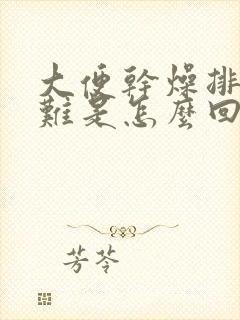 大便幹燥排
難是怎麼回
芳苓